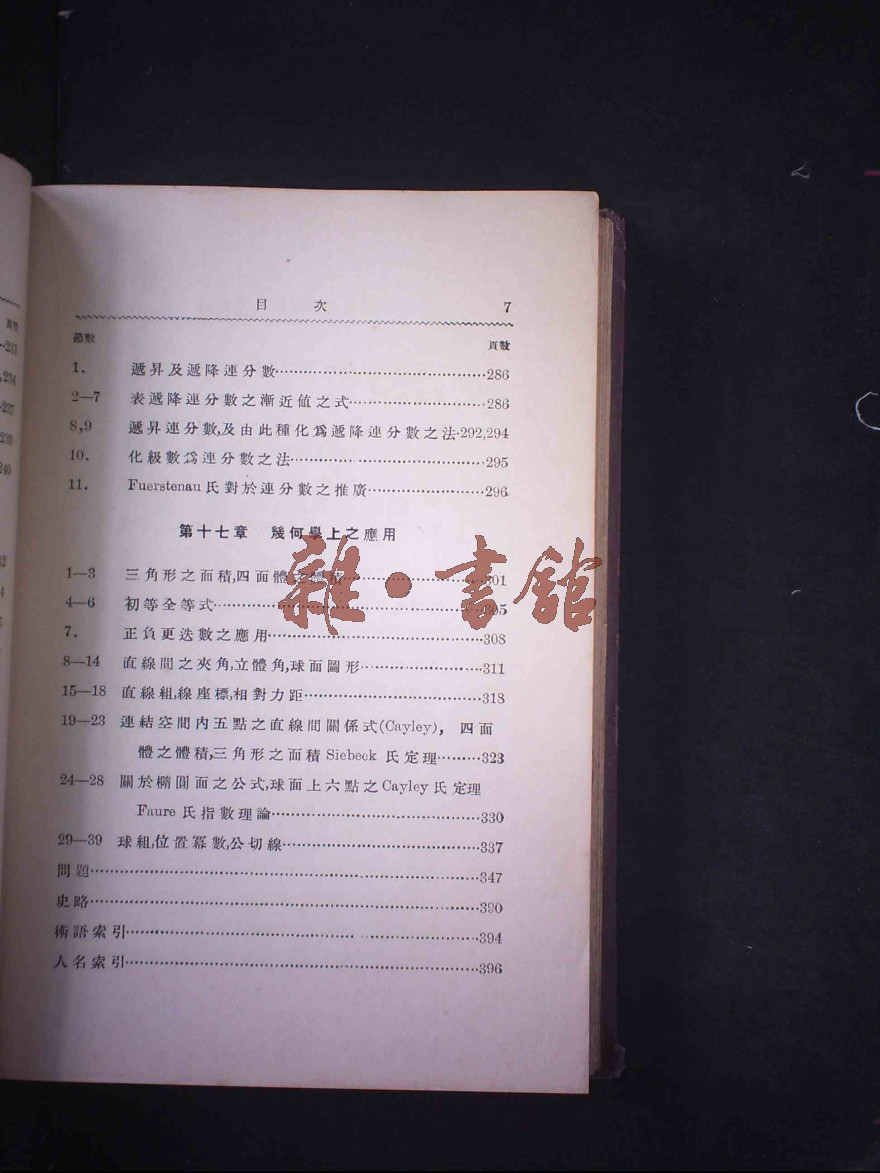 目 次 7
節數 頁數
1. 遞昇及遞降連分數……286
2—7 表遞降連分數之漸近値之式……286
8,9 遞昇連分數,及由此種化爲遞降連分數之法·292,294
10. 化級數爲連分數之法……295
11. Fuerstenau 氏對於連分數之推廣……296
第十七章 幾何學上之應用
1—3 三角形之面積,四面體之體積……301
4—6 初等全等式……305
7. 正負更迭數之應用……308
8—14 直線間之夾角,立體角,球面圖形……311
15—18 直線組,線座標,相對力距……318
19—23 連結空間內五點之直線間關係式(Cayley), 四面
體之體積,三角形之面積 Siebeck 氏定理……323
24—28 關於橢圓面之公式,球面上六點之 Cayley 氏定理
Faure 氏指數理論……330
29—39 球組,位置冪數,公切線……337
問題……347
史略……390
術語索引……394
人名索引……396
雜·書館
頁數
237
,234
237
239
240